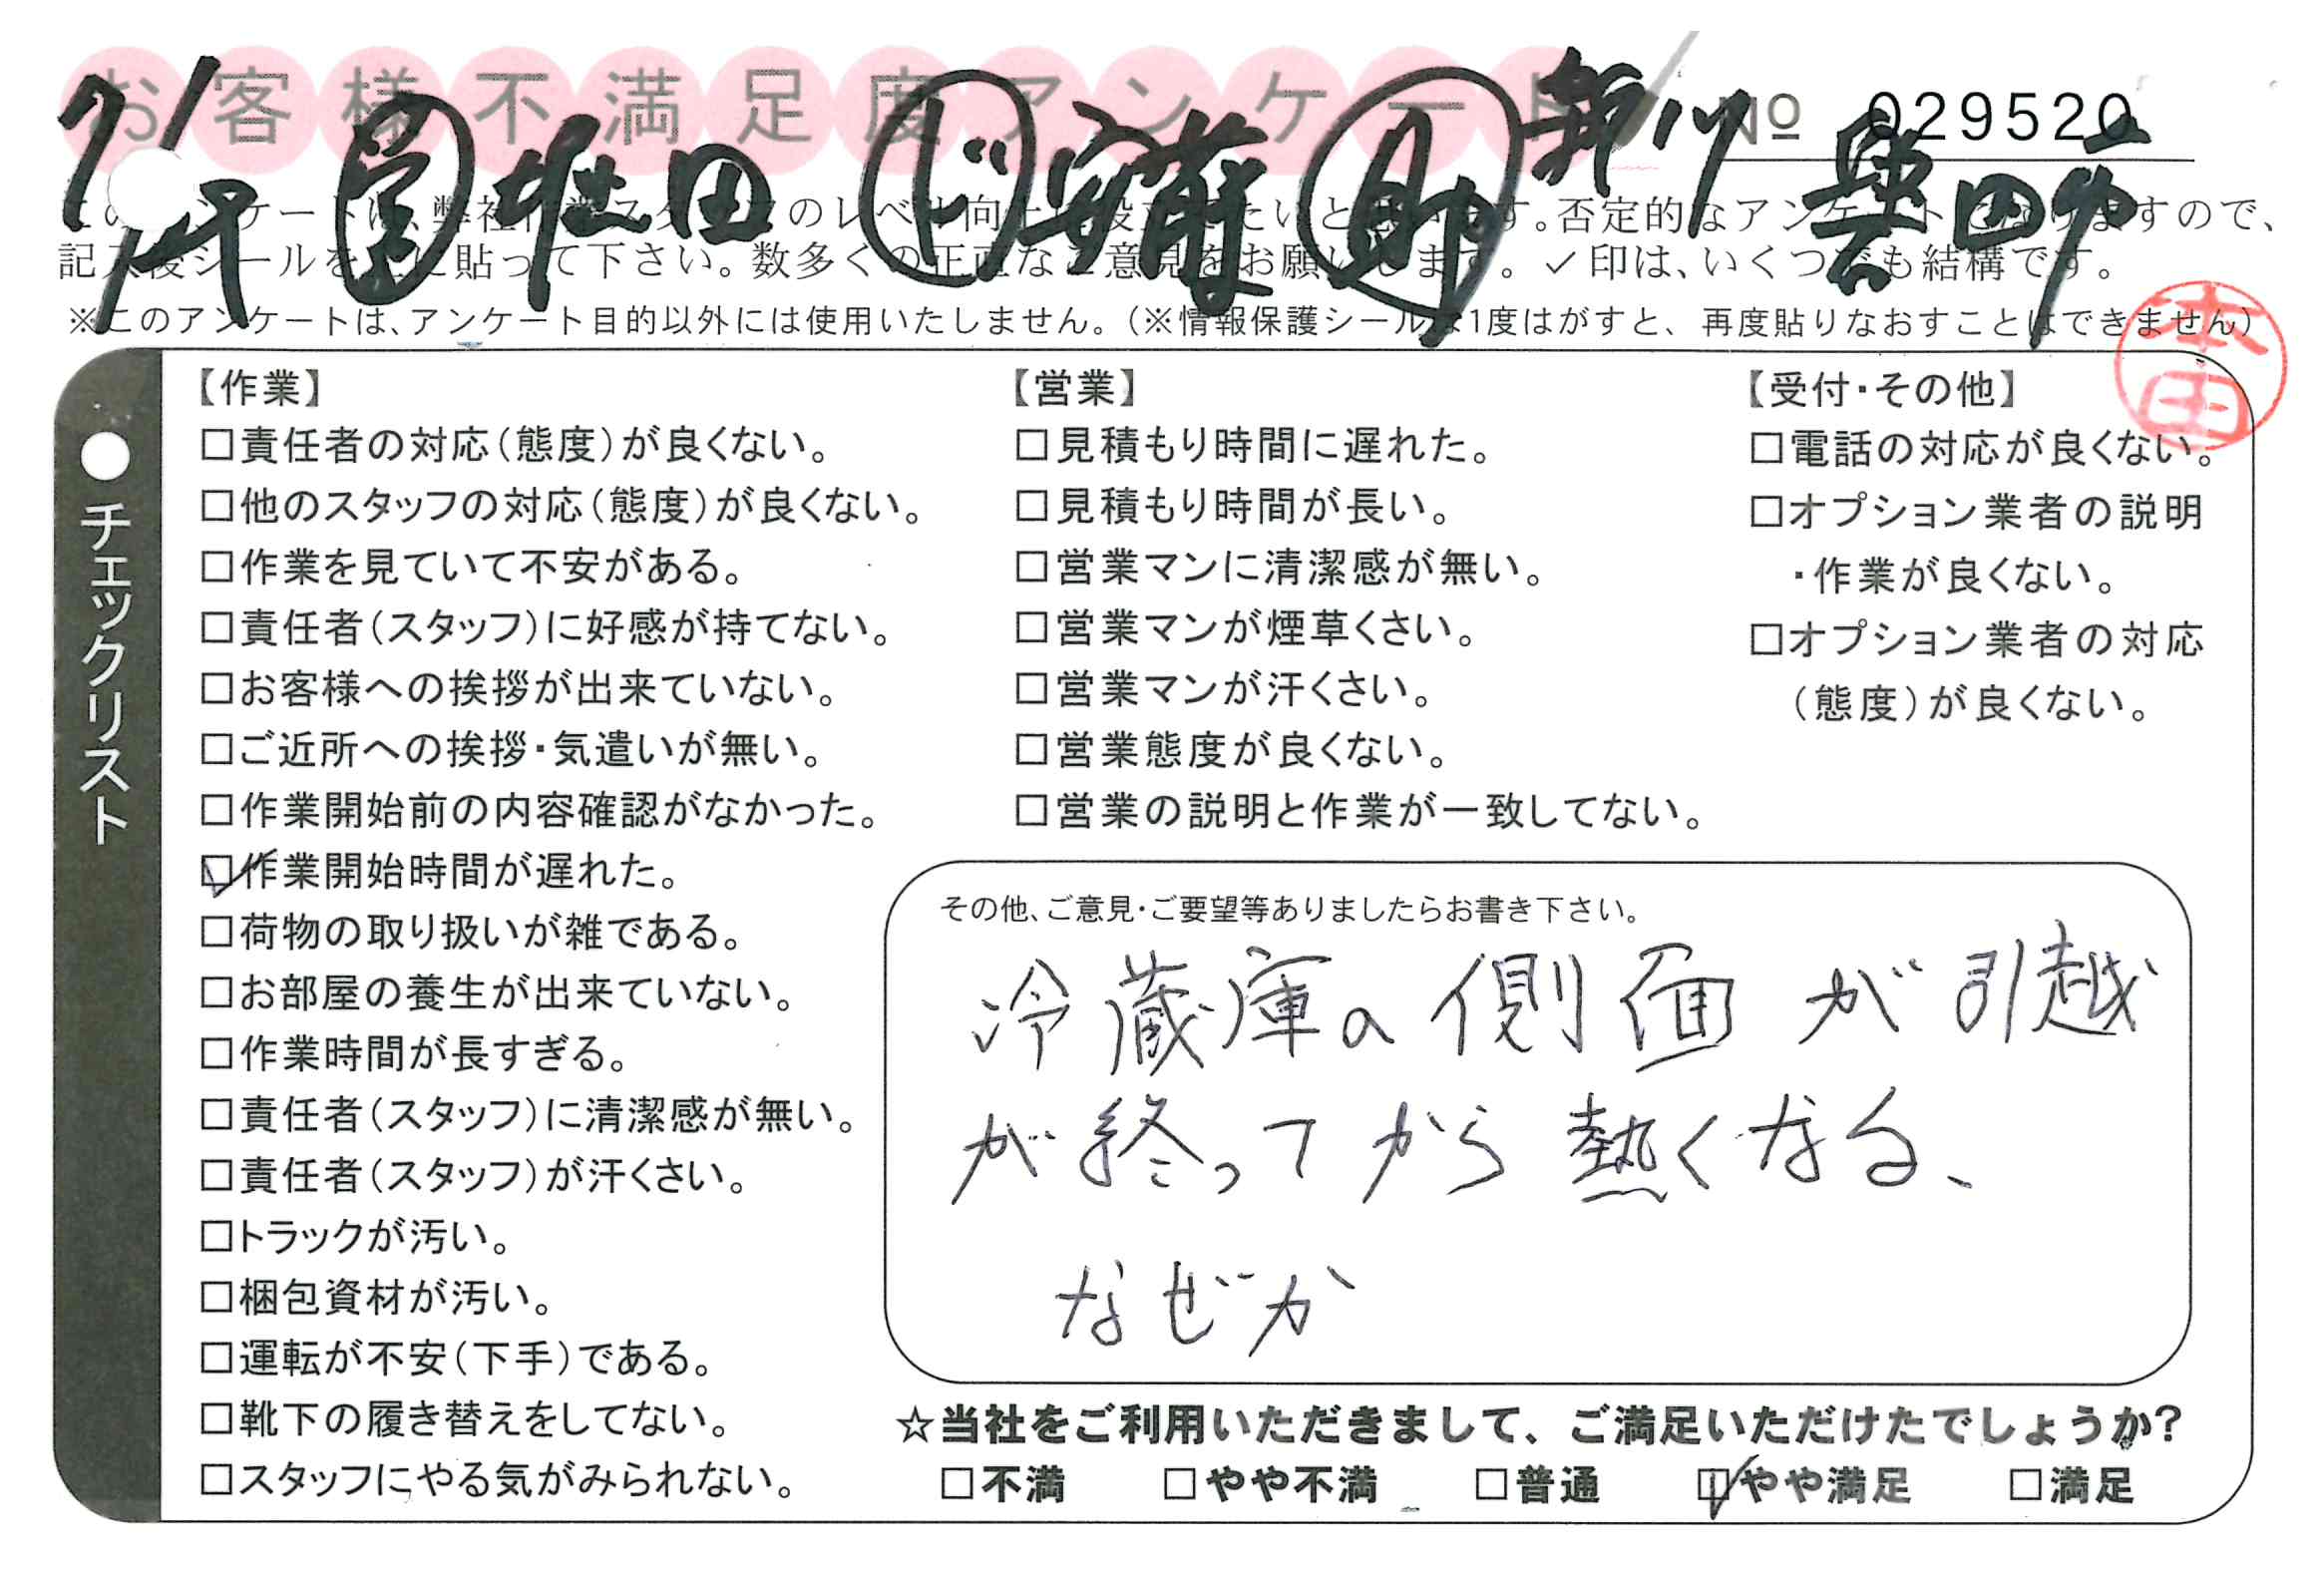 お客様不満足度アンケート
No 029520
7/
営 堀田 ド 安藤 助
このアンケートは、弊社作業スタッフのレベル向上に役立てたいと思います。否定的なアンケートになりますので、
記入後シールを上に貼って下さい。数多くの正直なご意見をお願いします。✓印は、いくつでも結構です。
※このアンケートは、アンケート目的以外には使用いたしません。（※情報保護シールは1度はがすと、再度貼りなおすことはできません）
本田
●チェックリスト
【作業】
□責任者の対応（態度）が良くない。
□他のスタッフの対応（態度）が良くない。
□作業を見ていて不安がある。
□責任者（スタッフ）に好感が持てない。
□お客様への挨拶が出来ていない。
□ご近所への挨拶・気遣いが無い。
□作業開始前の内容確認がなかった。
☑作業開始時間が遅れた。
□荷物の取り扱いが雑である。
□お部屋の養生が出来ていない。
□作業時間が長すぎる。
□責任者（スタッフ）に清潔感が無い。
□責任者（スタッフ）が汗くさい。
□トラックが汚い。
□梱包資材が汚い。
□運転が不安（下手）である。
□靴下の履き替えをしてない。
□スタッフにやる気がみられない。
【営業】
□見積もり時間に遅れた。
□見積もり時間が長い。
□営業マンに清潔感が無い。
□営業マンが煙草くさい。
□営業マンが汗くさい。
□営業態度が良くない。
□営業の説明と作業が一致してない。
【受付・その他】
□電話の対応が良くない。
□オプション業者の説明
・作業が良くない。
□オプション業者の対応
（態度）が良くない。
その他、ご意見・ご要望等ありましたらお書き下さい。
冷蔵庫の側面が引越
が終ってから熱くなる、
なぜか
☆当社をご利用いただきまして、ご満足いただけたでしょうか?
□不満 □やや不満 □普通 ☑やや満足 □満足